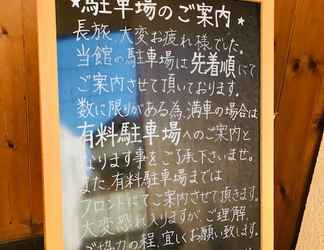 ★駐車場のご案内★
長旅、大変お疲れ様でした。
当館の駐車場は先着順にて
ご案内させて頂いております。
数に限りがある為、満車の場合は
有料駐車場へのご案内と
なります事をご了承下さいませ。
また、有料駐車場までは
フロントにてご案内させて頂きます。
大変恐れ入りますが、ご理解、
ご協力の程、宜しくお願い致します。